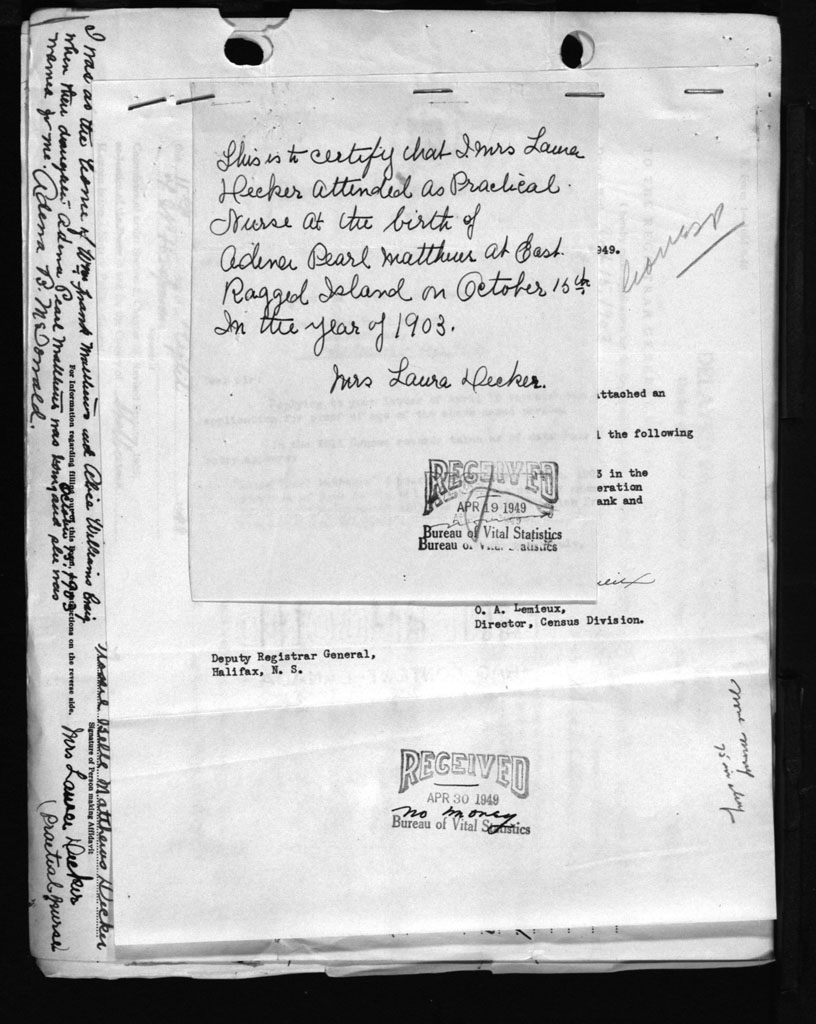 This is to certify that I Mrs Laura
Hecker attended as Practical
Nurse at the birth of
Adena Pearl Matthews at East
Ragged Island on October 15th
In the year of 1903.
Mrs Laura Hecker.
RECEIVED
APR 19 1949
Bureau of Vital Statistics
Bureau of Vital Statistics
949.
attached an
the following
in the
eration
ank and
O. A. Lemieux,
Director, Census Division.
Deputy Registrar General,
Halifax, N. S.
RECEIVED
APR 30 1949
no money
Bureau of Vital Statistics
I was at the home of Wm Frank Matthews and Alice Williams Craig
when their daughter Adena Pearl Matthews was born and she was
October 15, 1903
named for me, Adena B. McDonald.
For Information regarding filling this on the reverse side.
Belle Matthews Hecker
Signature of Person making Affidavit
Mrs Laura Hecker
(Practical Nurse)